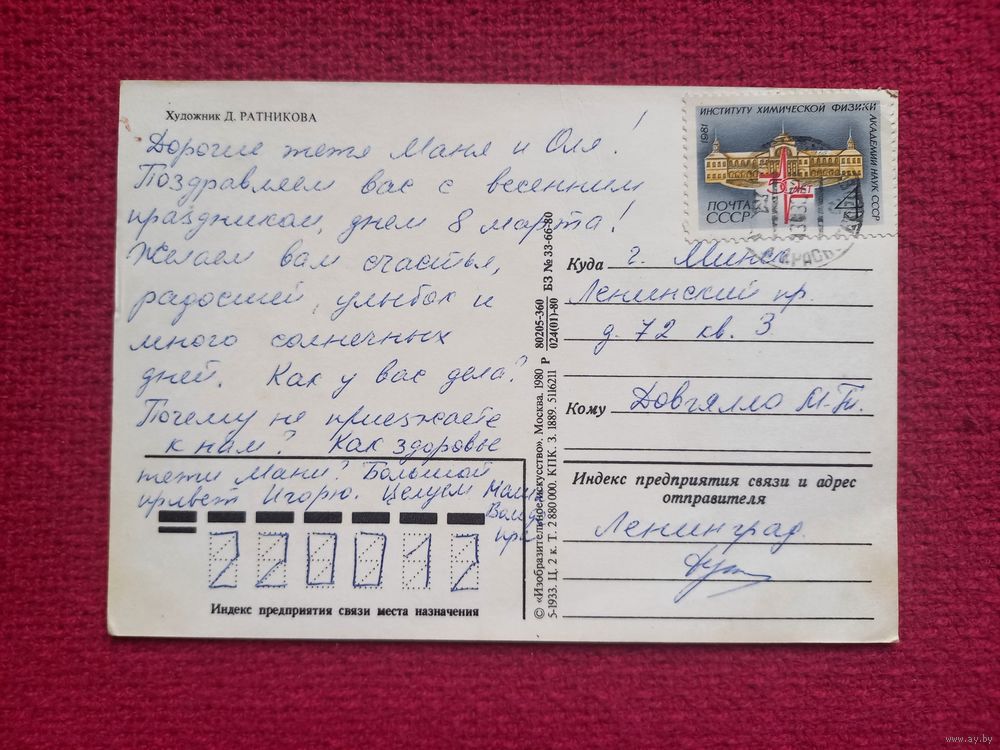 Художник Д. РАТНИКОВА
Дорогие тетя Маня и Оля!
Поздравляем вас с весенним
праздником, днем 8 марта!
Желаем вам счастья,
радостей, улыбок и
много солнечных
дней. Как у вас дела?
Почему не приезжаете
к нам? Как здоровье
тети Мани? Большой
привет Игорю. Целуем
Индекс предприятия связи места назначения
220012
© «Изобразительное искусство». Москва. 1980
5-1933. Ц. 2 к. Т. 2 880 000. КПК. З. 1889. 5116211
Р 80205-360 024(01)-80 БЗ № 33-66-80
ИНСТИТУТУ ХИМИЧЕСКОЙ ФИЗИКИ АКАДЕМИИ НАУК СССР
1981
50 ЛЕТ
ПОЧТА
СССР
Куда г. Минск
Ленинский пр.
д. 72 кв. 3
Кому Довгялло
Индекс предприятия связи и адрес
отправителя
Ленинград
www.ay.by